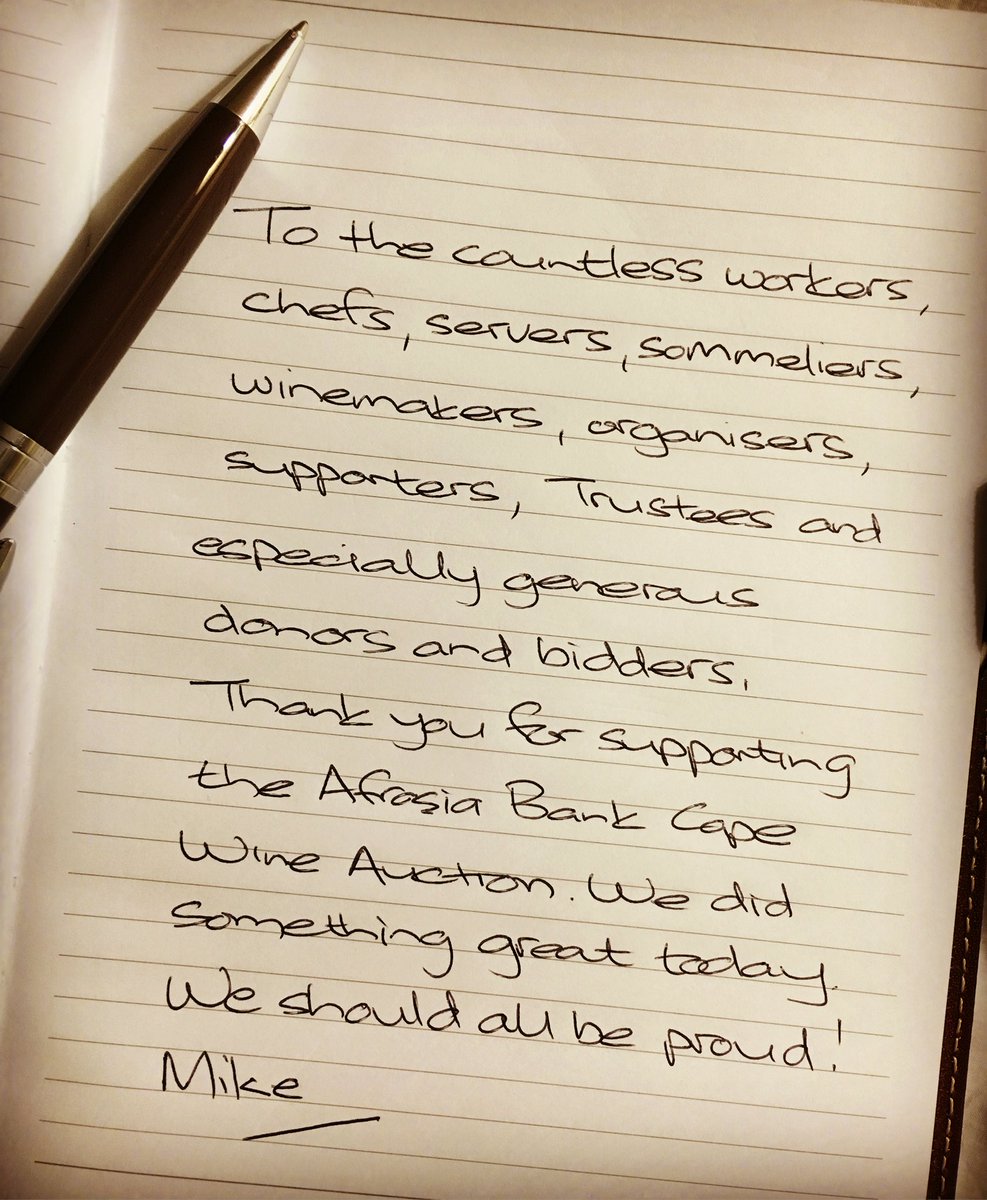 To the countless workers,
chefs, servers, sommeliers,
winemakers, organisers,
supporters, Trustees and
especially generous
donors and bidders,
Thank you for supporting
the Afrasia Bank Cape
Wine Auction. We did
something great today.
We should all be proud!
Mike